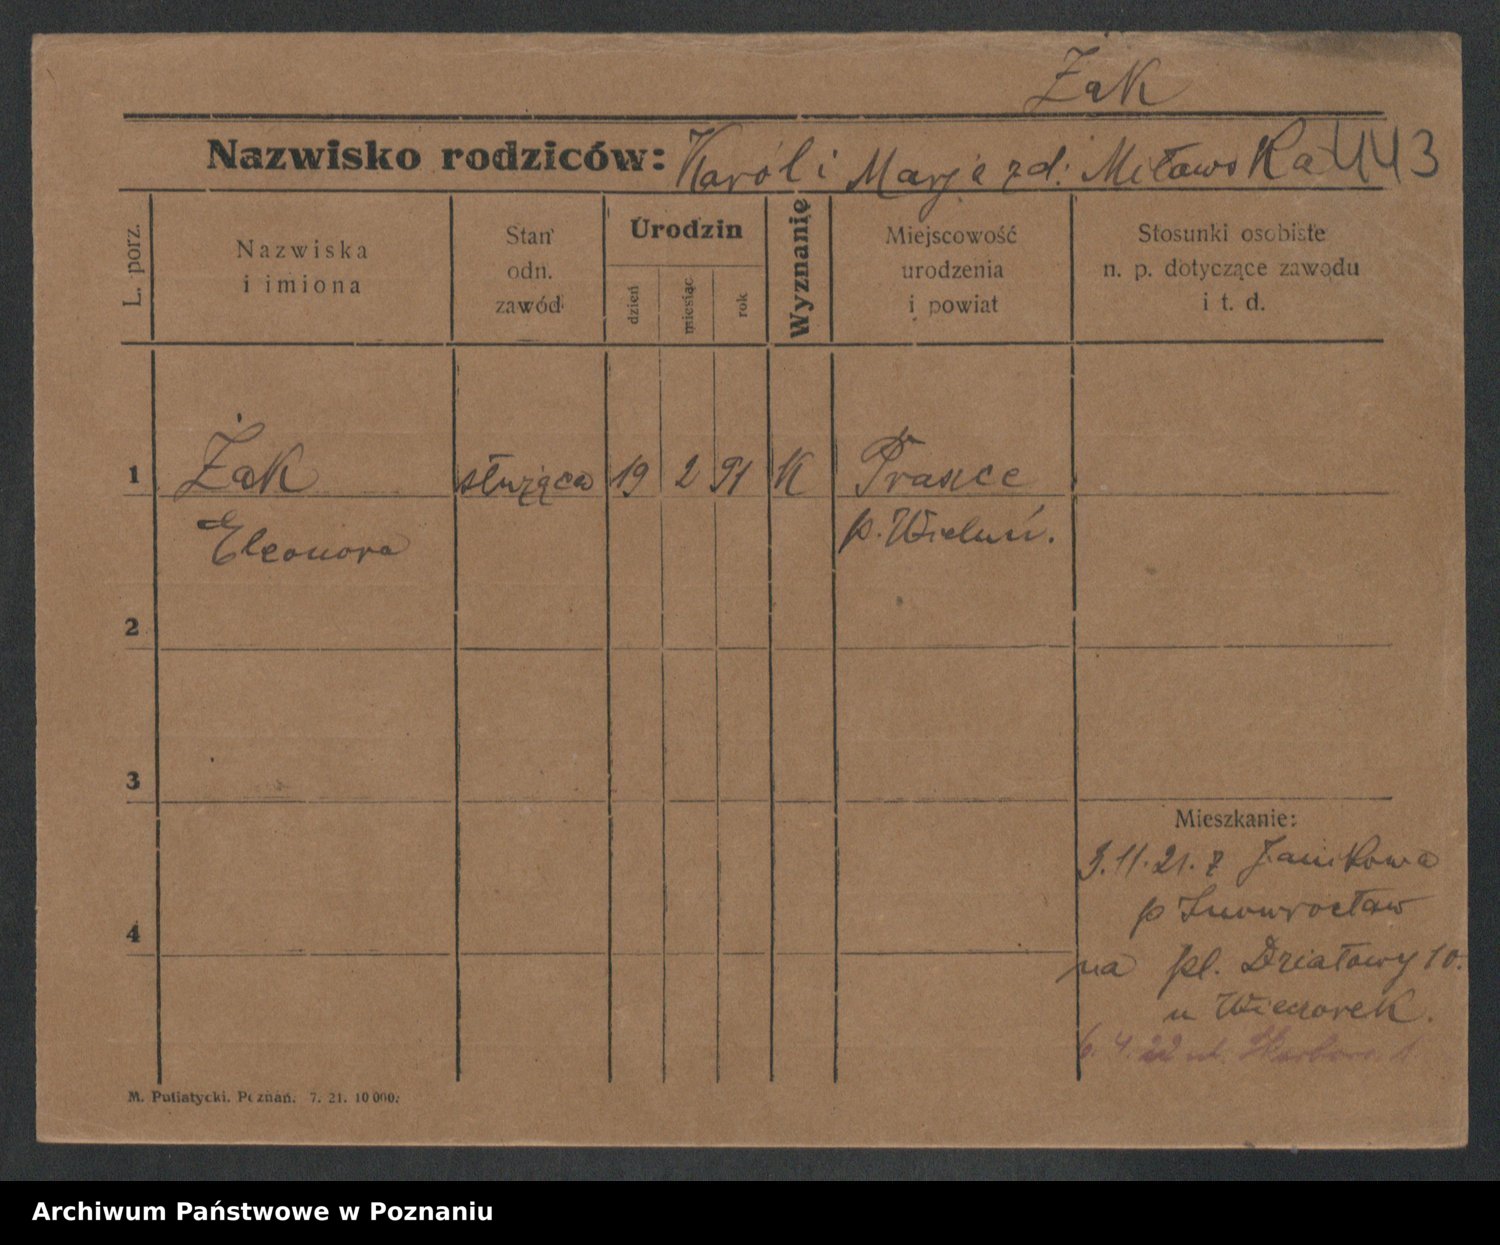 Żak
Nazwisko rodziców: Karól i Marja zd: Miławska 443
L. porz.
Nazwiska
i imiona
Stan
odn.
zawód
Urodzin
dzień
miesiąc
rok
Wyznanię
Miejscowość
urodzenia
i powiat
Stosunki osobiste
n. p. dotyczące zawodu
i t. d.
1 Żak służąca 19 2 91 K Praszce
Eleonora p. Wieluń.
2
3
Mieszkanie:
3.11.21. z Janikowa
p Inowrocław
4
na pl. Działowy 10.
u Wieczorek.
6. 4. 22 ul. 1.
M. Putiatycki. Poznań. 7. 21. 10 000.
Archiwum Państwowe w Poznaniu